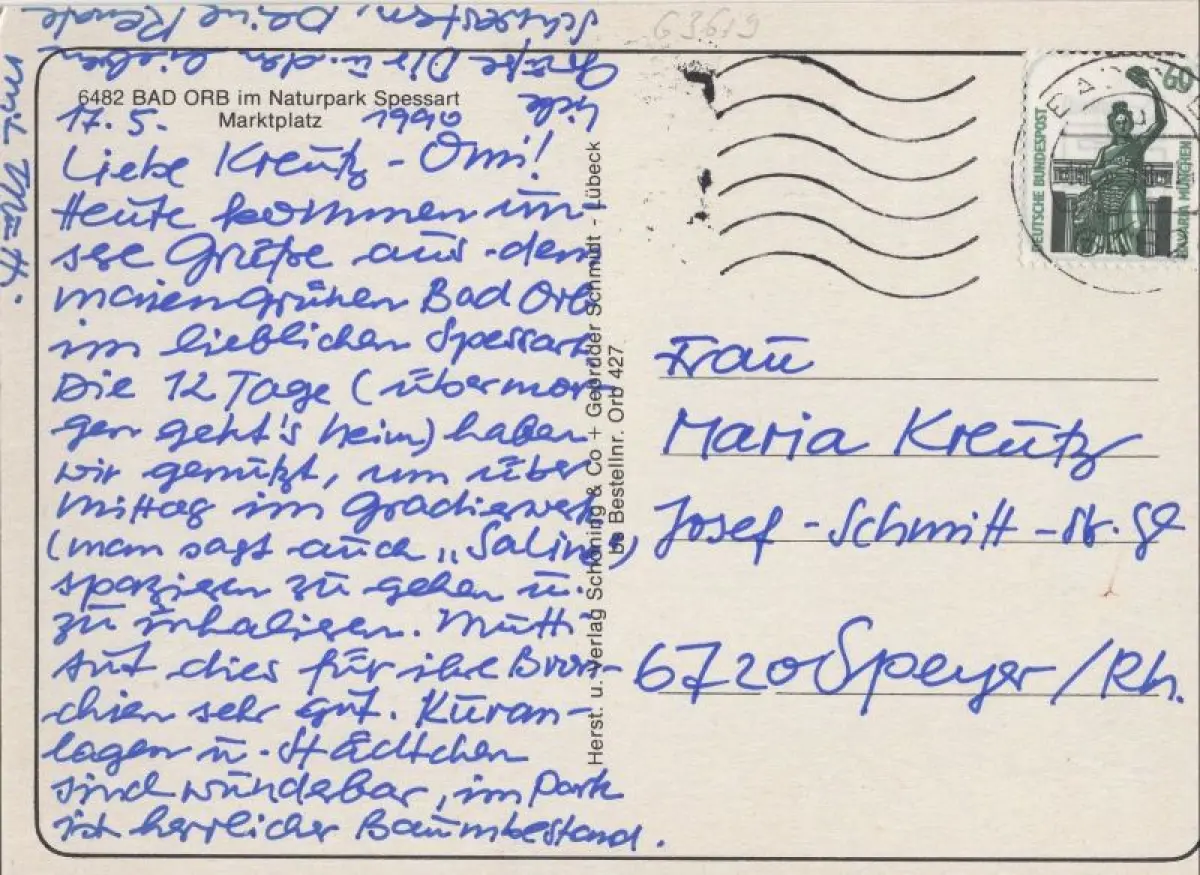 63619
6482 BAD ORB im Naturpark Spessart
Marktplatz
17.5. 1990
Liebe Kreutz-Omi!
Heute kommen un-
sere Grüße aus dem
maiengrünen Bad Orb
im lieblichen Spessart.
Die 12 Tage (übermor-
gen geht's heim) haben
wir genutzt, um über
Mittag im Gradierwerk
(man sagt auch „Saline")
spazieren zu gehen u.
zu inhalieren. Mutti
tut dies für ihre Bron-
chien sehr gut. Kuran-
lagen u. Städtchen
sind wunderbar, im Park
ist herrlicher Baumbestand.
Liebe
Grüße Dir u. den lieben
Schwestern, Deine Renate
mit Mutti.
Herst. u. Verlag Schöning & Co + Gebrüder Schmidt - Lübeck
Bestellnr. Orb 427
DEUTSCHE BUNDESPOST
60
BAVARIA MÜNCHEN
Frau
Maria Kreutz
Josef-Schmitt-Str.
6720 Speyer/Rh.